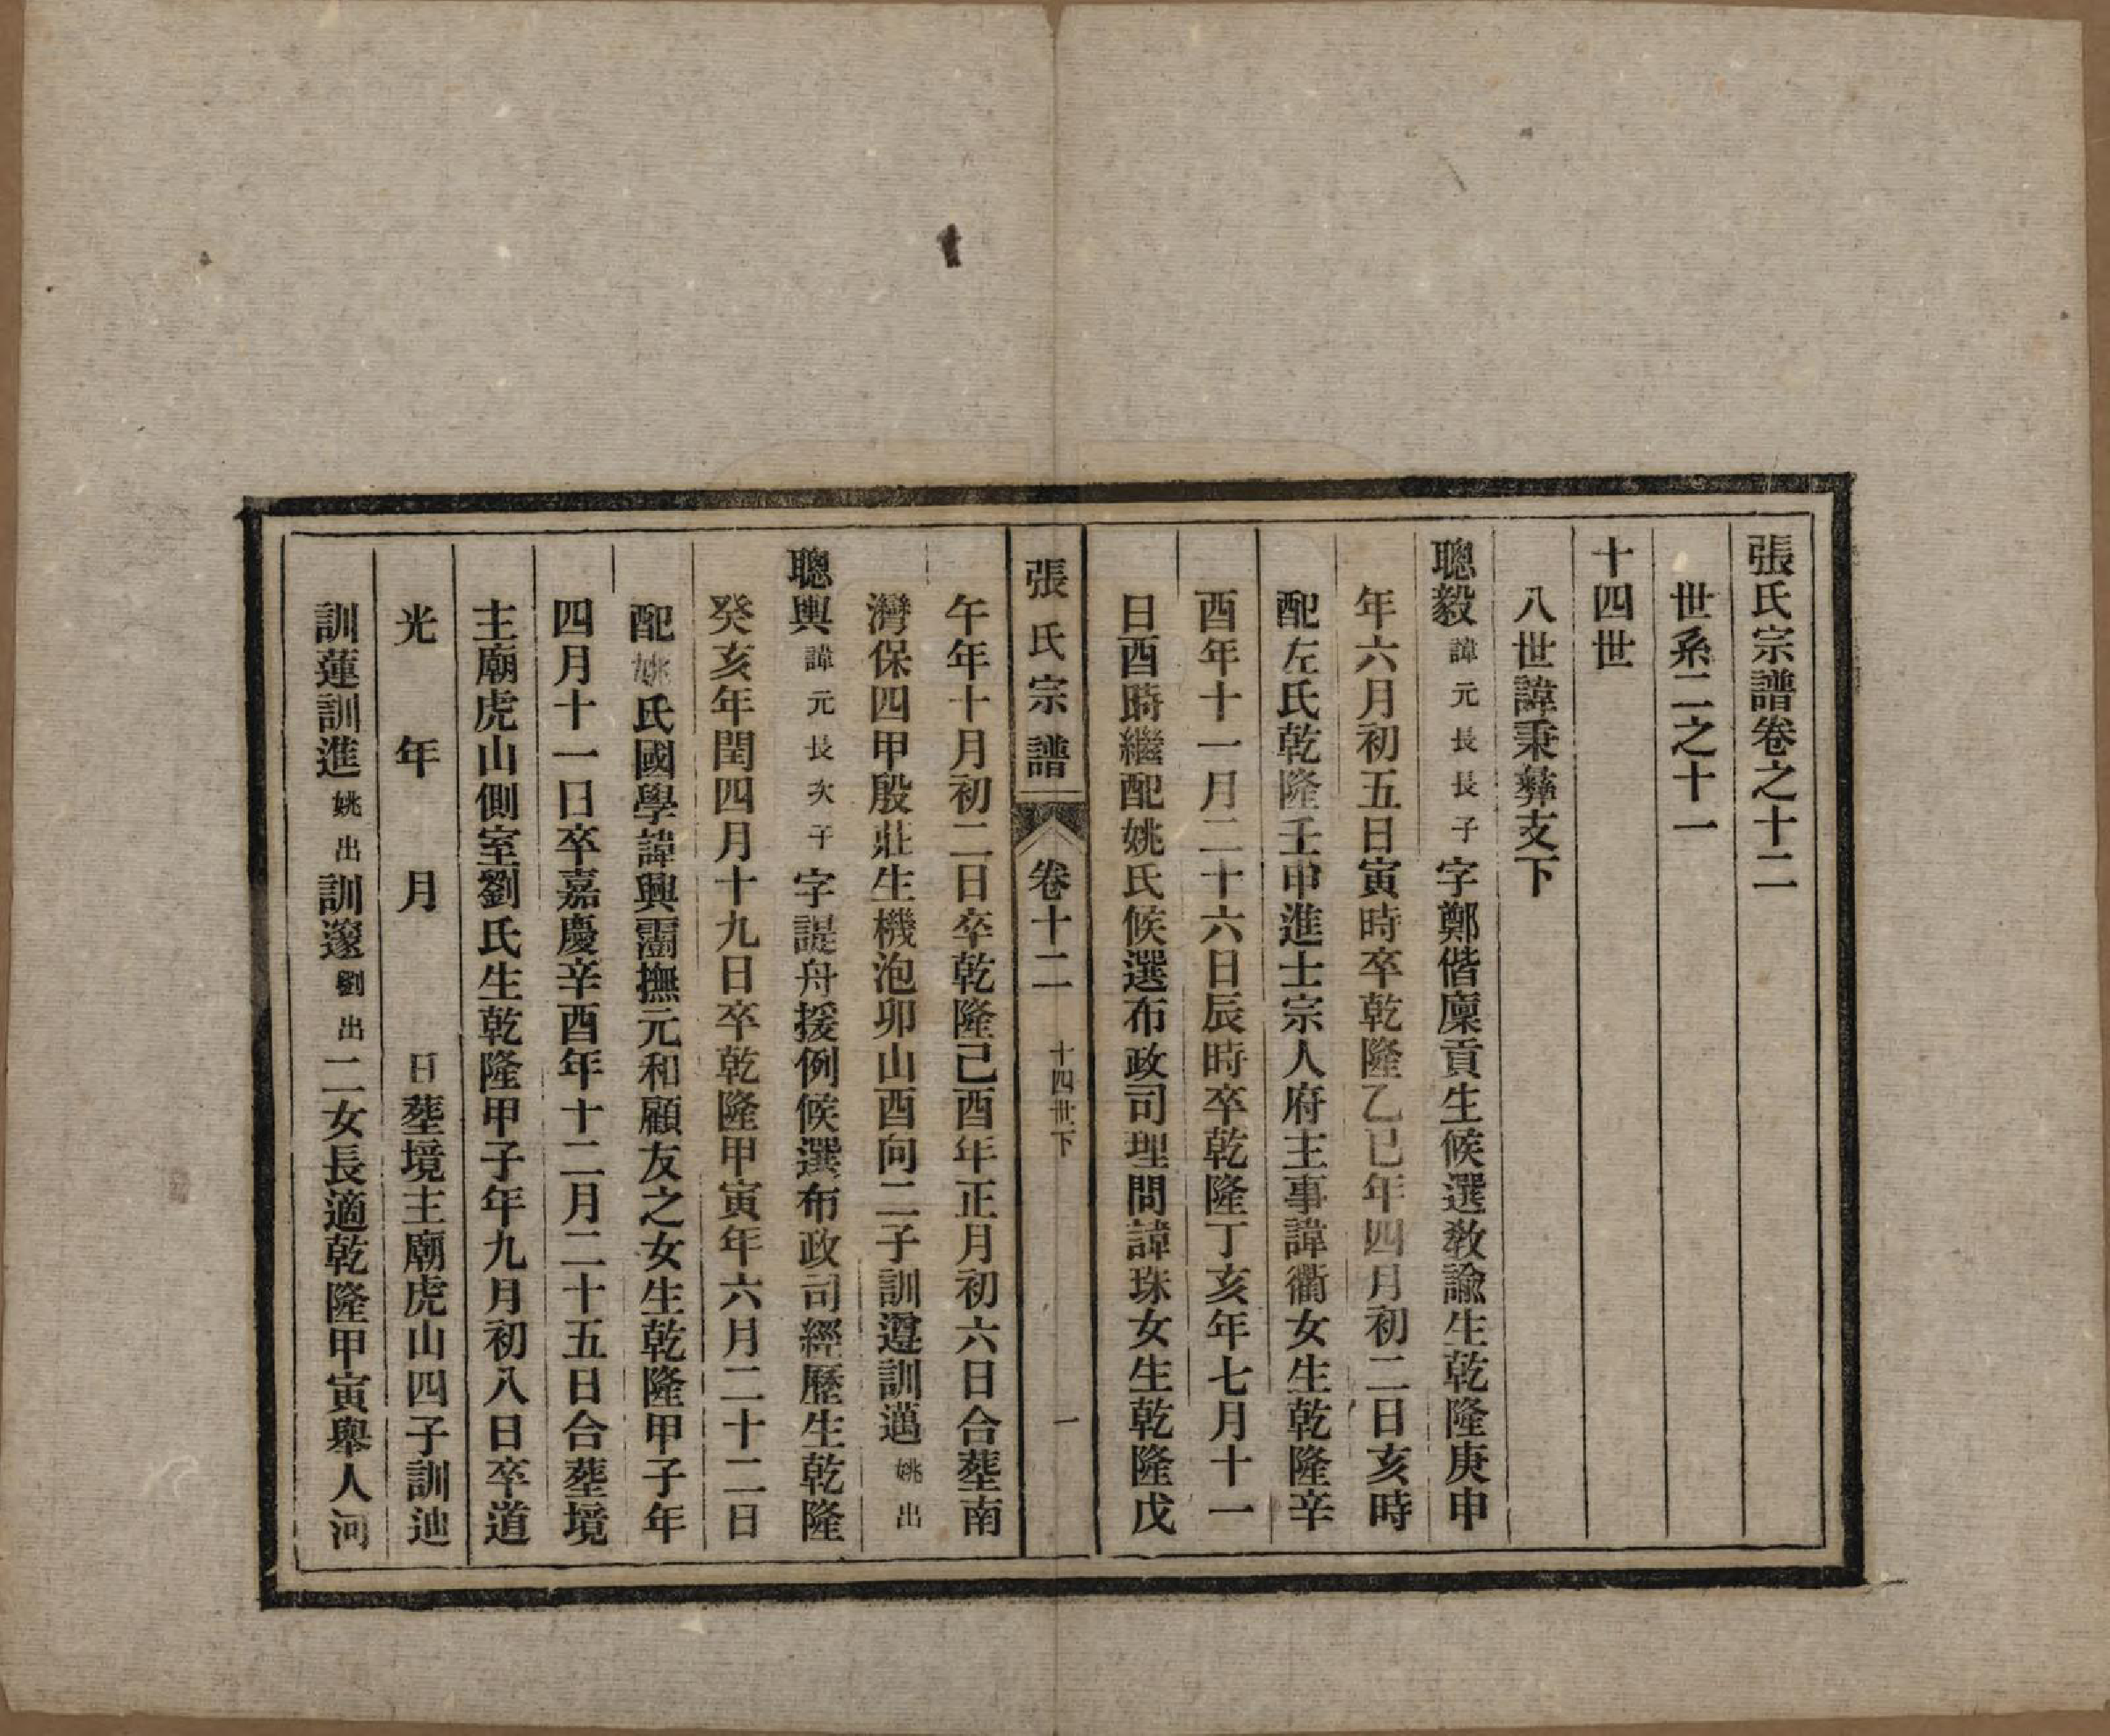 張氏宗譜卷之十二
世系二之十一
十四世
八世諱秉彝支下
聰毅諱元長長子字鄭偕廩貢生候選教諭生乾隆庚申
年六月初五日寅時卒乾隆乙巳年四月初二日亥時
配左氏乾隆壬申進士宗人府主事諱衢女生乾隆辛
酉年十一月二十六日辰時卒乾隆丁亥年七月十一
日酉時繼配姚氏候選布政司理問諱珠女生乾隆戊
張氏宗譜 卷十二 十四世下 一
午年十月初二日卒乾隆己酉年正月初六日合塟南
灣保四甲殷莊生機泡卯山酉向二子訓遵訓邁姚出
聰輿諱元長次子字諟舟援例候選布政司經歷生乾隆
癸亥年閏四月十九日卒乾隆甲寅年六月二十二日
配姚氏國學諱興灁撫元和顧友之女生乾隆甲子年
四月十一日卒嘉慶辛酉年十二月二十五日合塟境
主廟虎山側室劉氏生乾隆甲子年九月初八日卒道
光 年 月 日塟境主廟虎山四子訓迪
訓蓮訓進姚出訓邃劉出二女長適乾隆甲寅舉人河